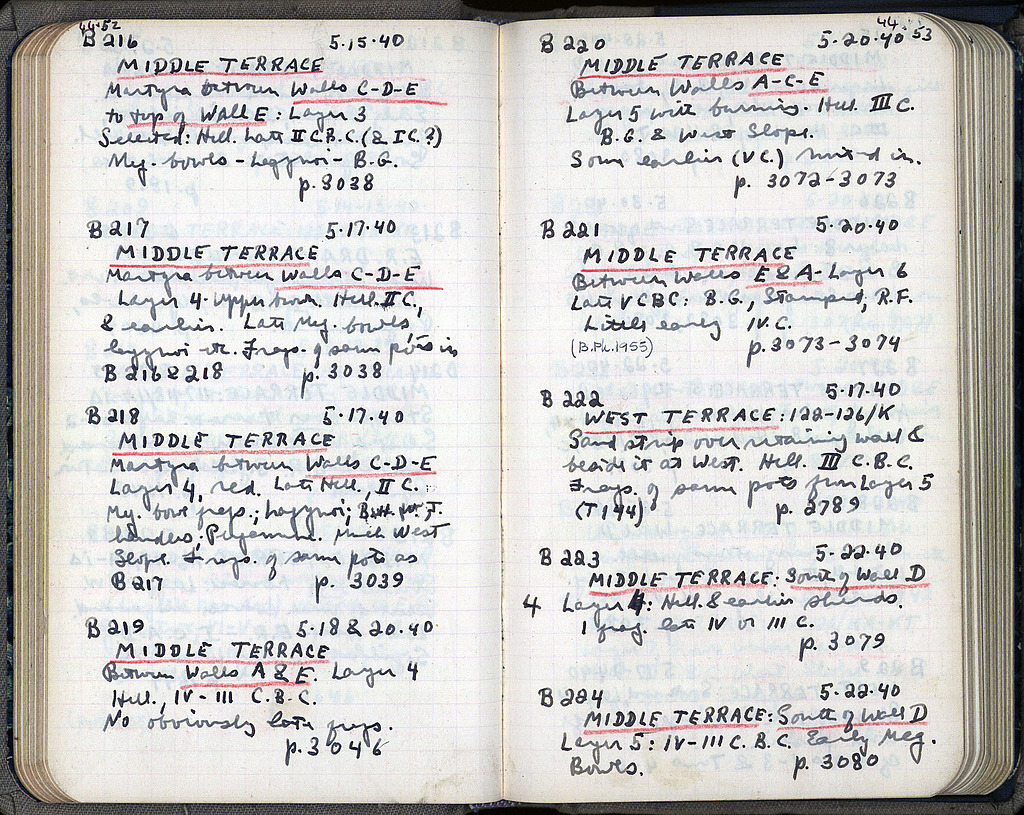 44.52
B 216 5.15.40
MIDDLE TERRACE
Martyra between Walls C-D-E
to top of Wall E: Layer 3
Selected: Hell. Late II C.B.C. (& I C.?)
Meg. bowls - Lagynoi - B.G.
p. 3038
B 217 5.17.40
MIDDLE TERRACE
Martyra between Walls C-D-E
Layer 4. Upper brown. Hell. II C.,
& earlier. Late Meg. bowls,
lagynoi etc. Frags. of same pots in
B 216 & 218 p. 3038
B 218 5.17.40
MIDDLE TERRACE
Martyra between Walls C-D-E
Layer 4, red. Late Hell., II C.
Meg. bowl frags.; lagynoi;
handles; Pergamene. Much West
Slope. Frags. of same pots as
B 217 p. 3039
B 219 5.18 & 20.40
MIDDLE TERRACE
Between Walls A & E. Layer 4
Hell., IV-III C.B.C.
No obviously late frags.
p. 3046
44 53
B 220 5.20.40
MIDDLE TERRACE
Between Walls A-C-E
Layer 5 with burning. Hell. III C.
B.G. & West Slope.
Some earlier (V C.) mixed in.
p. 3072-3073
B 221 5.20.40
MIDDLE TERRACE
Between Walls E & A - Layer 6
Late V C BC: B.G., Stamped, R.F.
Little early IV C.
(B.Ph. 1955) p. 3073-3074
B 222 5.17.40
WEST TERRACE: 122-126/K
Sand strip over retaining wall &
beside it at West. Hell. III C.B.C.
Frags. of same pots from Layer 5
(T 144) p. 2789
B 223 5.22.40
MIDDLE TERRACE: South of Wall D
4 Layer 4: Hell. & earlier sherds.
1 frag. late IV or III C.
p. 3079
B 224 5.22.40
MIDDLE TERRACE: South of Wall D
Layer 5: IV-III C. B.C. Early Meg.
Bowls. p. 3080